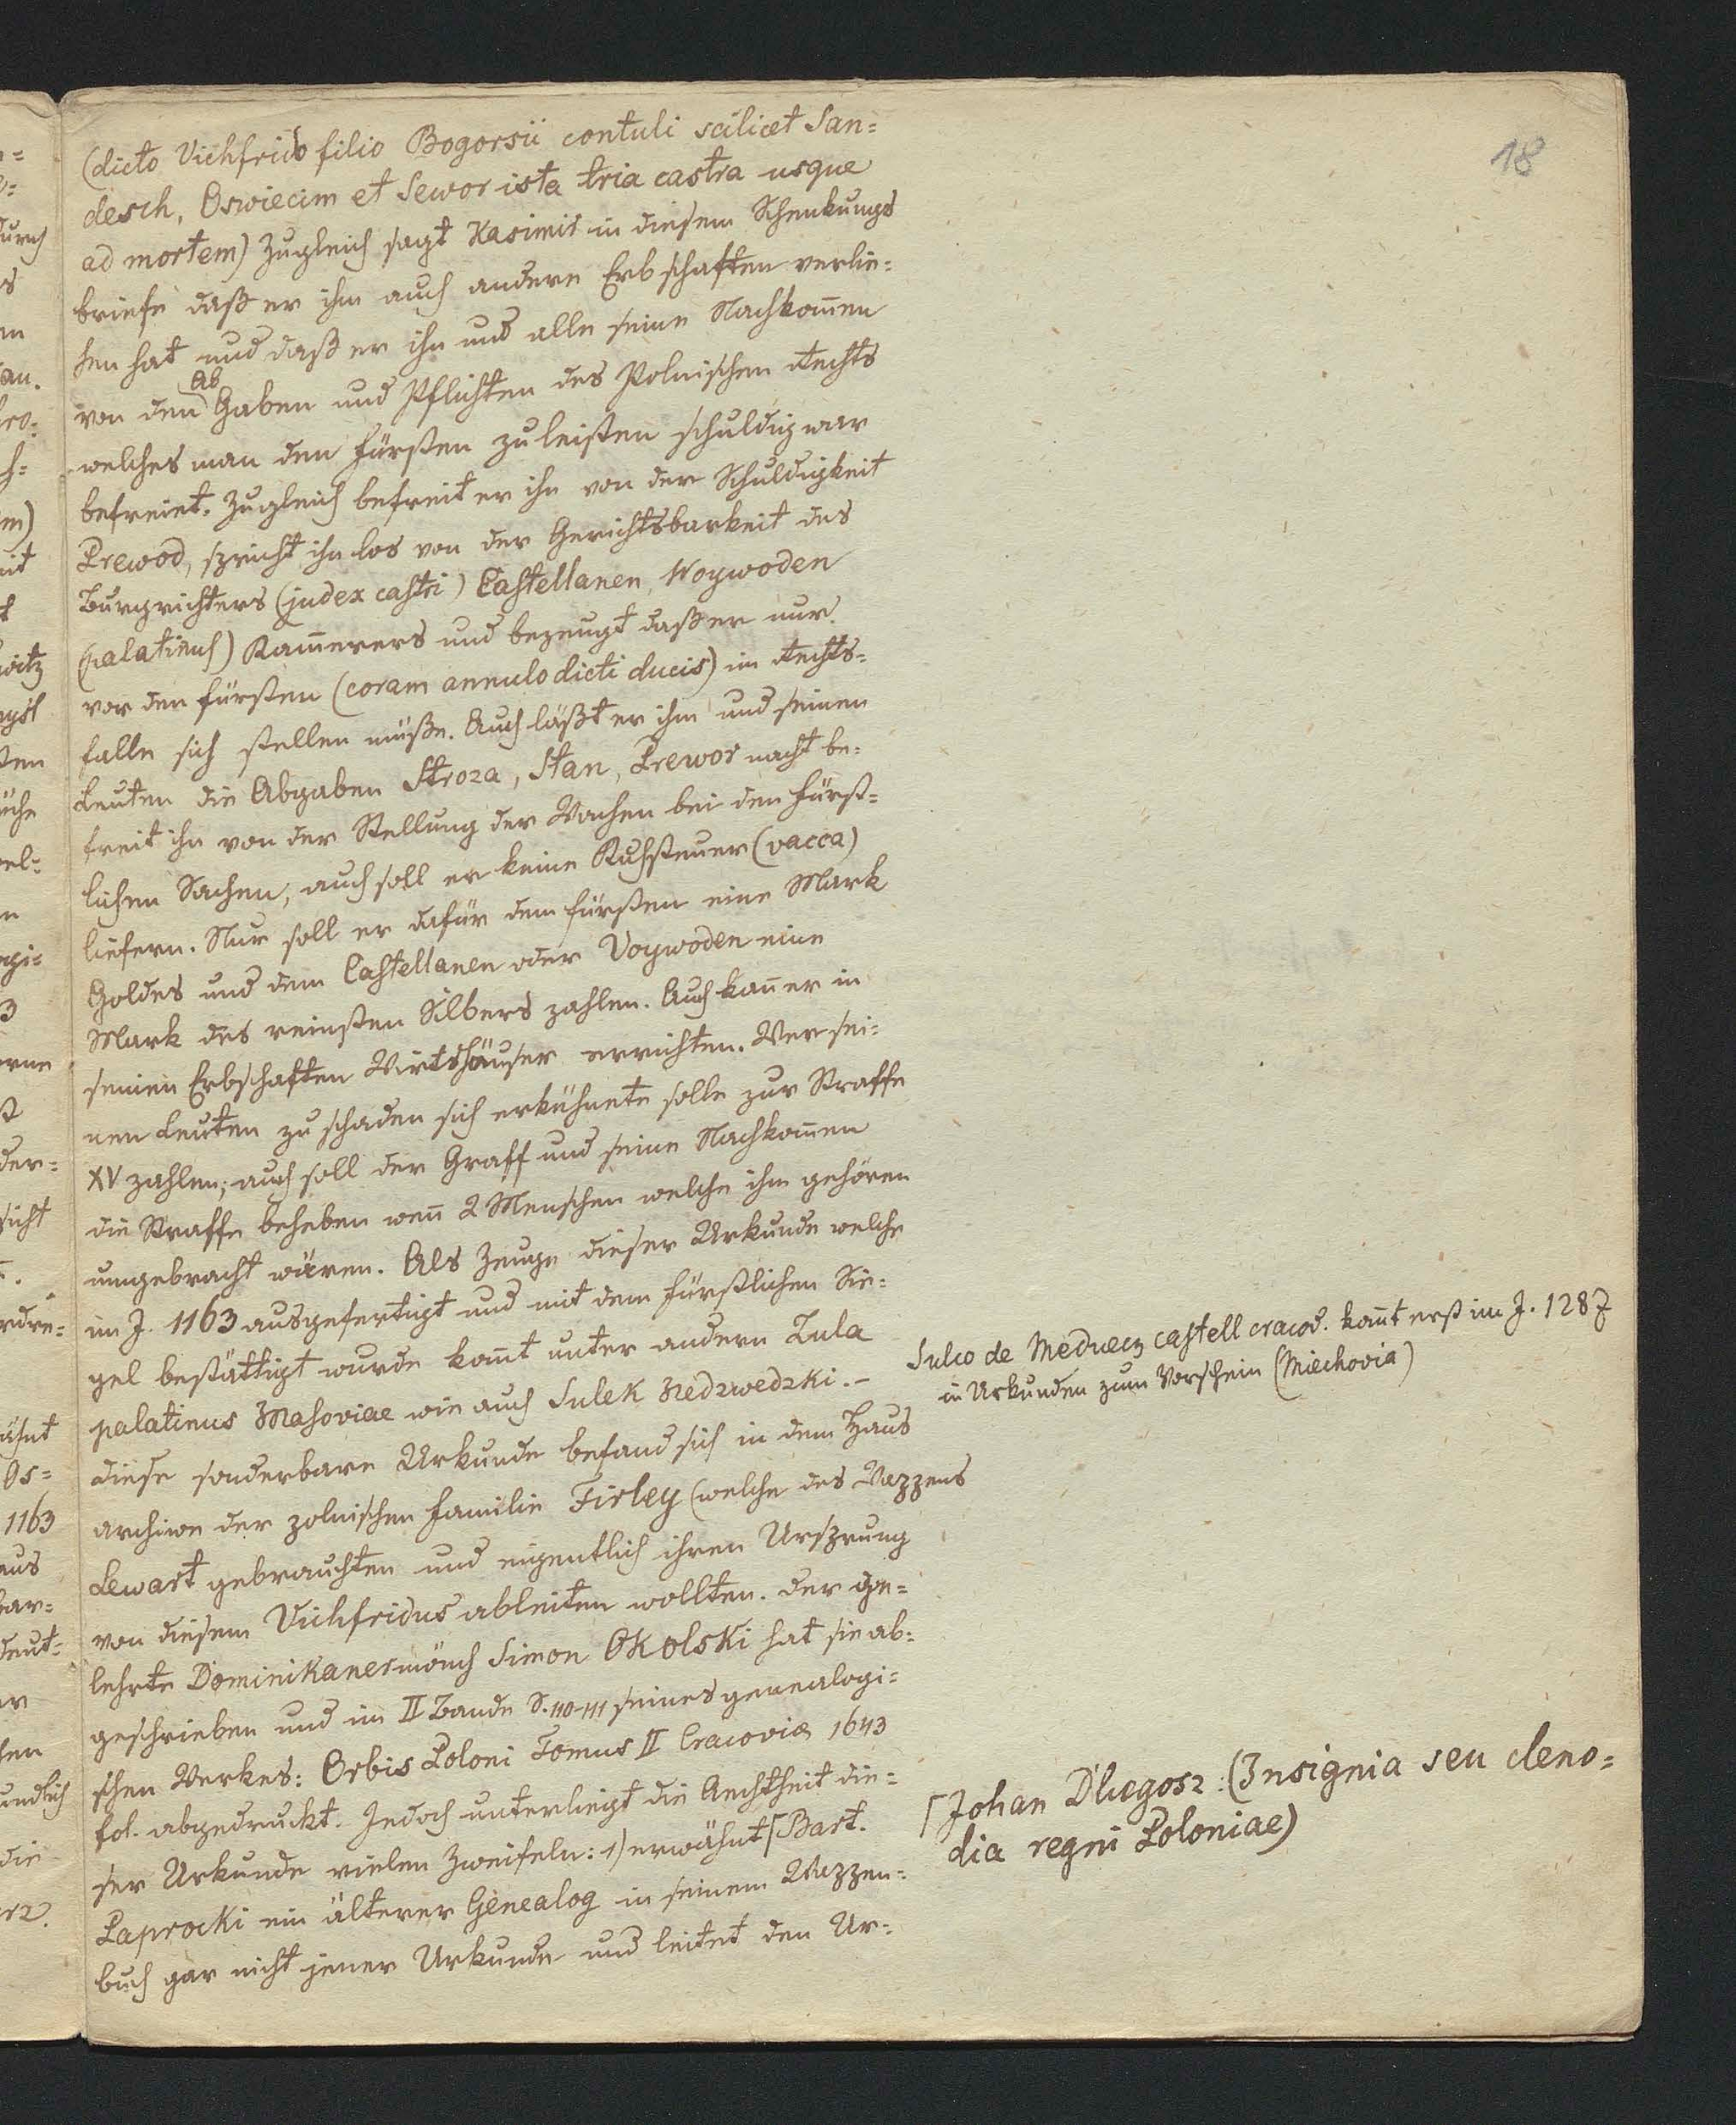 18
(dicto Vichfrido filio Bogorsii contuli scilicet San=
desch, Oswiecim et Sewor ista tria castra usque
ad mortem) Zugleich sagt Kasimir in diesem Schenkungs
briefe daß er ihm auch andere Erbschaften verlie=
hen hat und daß er ihn und alle seine Nachkom̄en
Ab
von den Gaben und Pflichten des Polnischen Rechts
welches man den Fürsten zu leisten schuldig war
befreiet. Zugleich befreit er ihn von der Schuldigkeit
Prewod, spricht ihn los von der Gerichtsbarkeit des
Burgrichters (judex castri) Castellanen, Woywoden
(palatinus) Kam̄erers und bezeugt daß er nur
vor den Fürsten (coram annulo dicti ducis) im Rechts=
falle sich stellen müße. Auch läßt er ihm und seinen
Leuten die Abgaben Stroza, Stan, Prewor nacht be=
freit ihn von der Stellung der Wachen bei den fürst=
lichen Sachen, auch soll er keine Kuhsteuer (vacca)
liefern. Nur soll er dafür dem Fürsten eine Mark
Goldes und dem Castellanen oder Voywoden eine
Mark des reinsten Silbers zahlen. Auch kan̄ er in
seinen Erbschaften Wirtshäuser errichten. Wer sei=
nen Leuten zu schaden sich erkühnete solle zur Straffe
XV zahlen; auch soll der Graff und seine Nachkom̄en
die Straffe beheben wen̄ 2 Menschen welche ihm gehören
umgebracht wären. Als Zeuge dieser Urkunde welche
im J. 1163 ausgefertigt und mit dem fürstlichen Sie=
gel bestättigt wurde kom̄t unter andern Zula
palatinus Masoviae wie auch Sulek Niedzwedzki.-
Diese sonderbare Urkunde befand sich in dem Haus
archive der polnischen Familie Firley (welche des Wappens
Lewart gebrauchten und eigentlich ihren Ursprung
von diesem Vichfridus ableiten wollten. Der ge=
lehrte Dominikanermönch Simon Okolski hat sie ab=
geschrieben und im II Bande S. 110-111 seines genealogi=
schen Werkes: Orbis Poloni Tomus II Cracoviæ 1643
fol. abgedruckt. Jedoch unterliegt die Aechtheit die=
ser Urkunde vielen Zweifeln: 1) erwähnt ⌈Bart.
Paprocki ein älterer Genealog in seinem Wappen=
buch gar nicht jener Urkunde und leitet den Ur=
Sulco de Medwecz castell cracov. kom̄t erst im J. 1287
in Urkunden zum Vorschein (Miechovia)
⌈Johan Dlugosz: (Insignia seu cleno=
dia regni Poloniae)